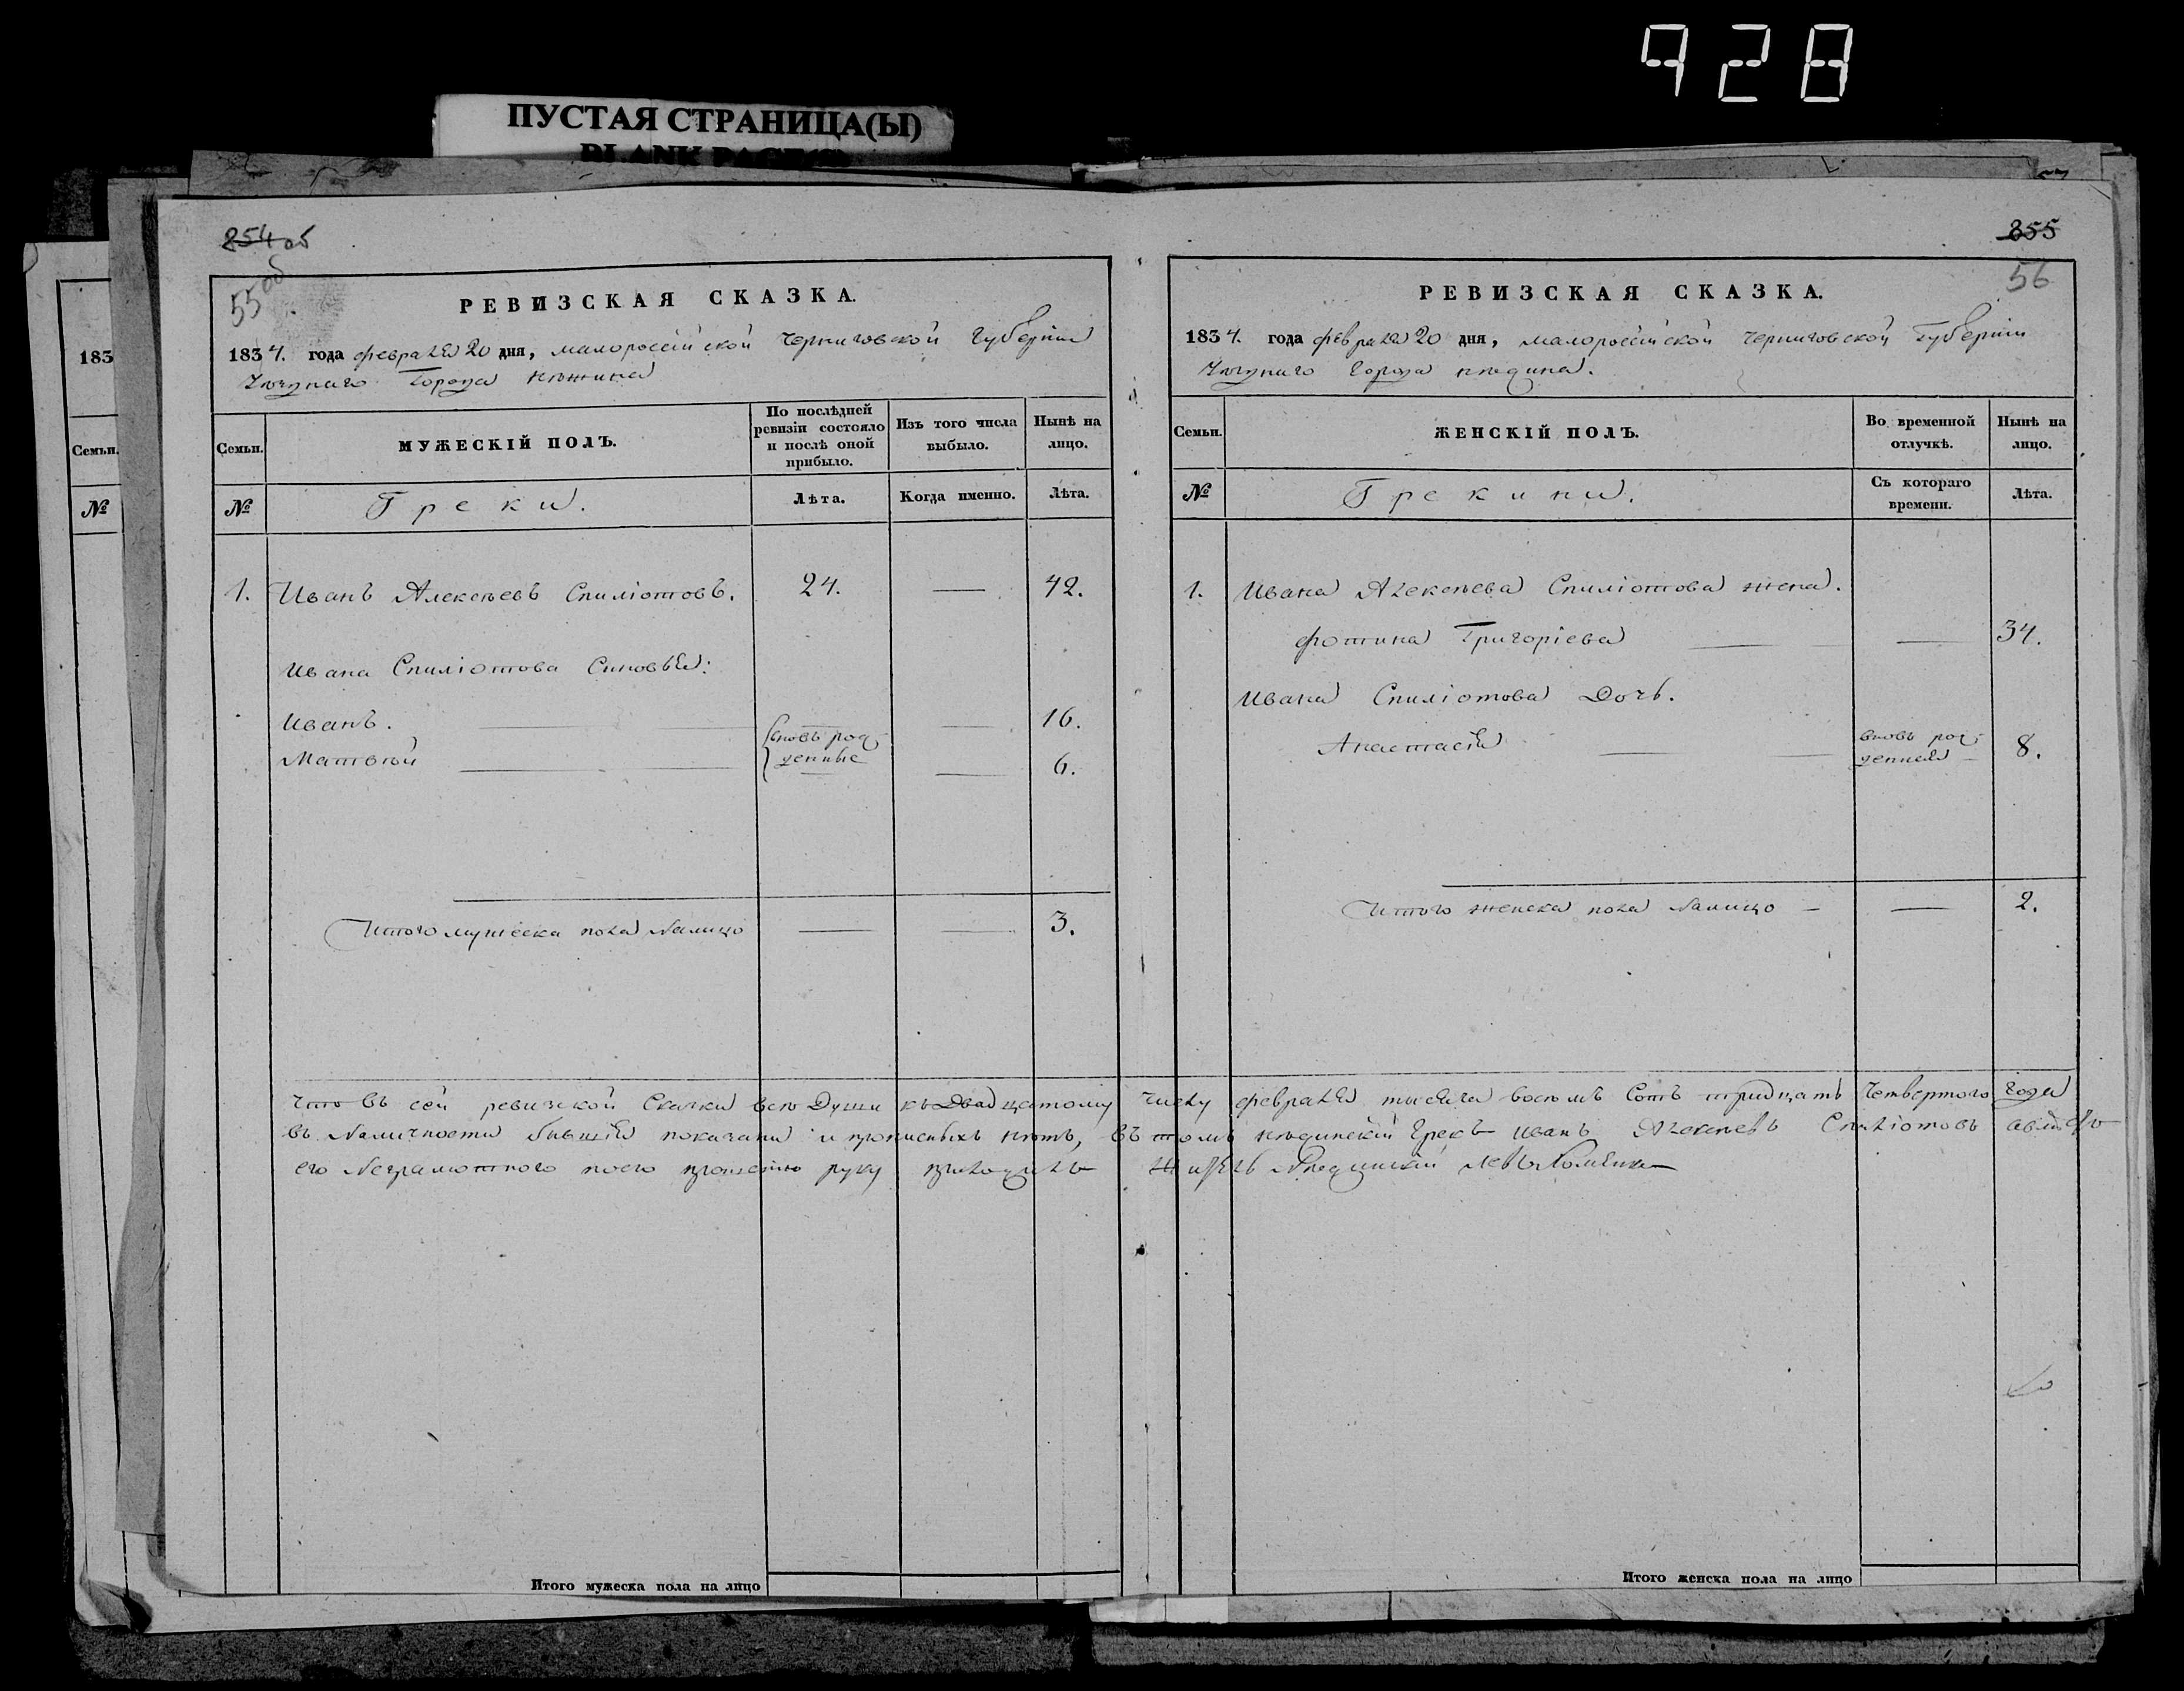 928
ПУСТАЯ СТРАНИЦА(Ы)
BLANK PAGE(S)
183
Семьи.
№
854 об
55 об
РЕВИЗСКАЯ СКАЗКА.
1834. года февраля 20 дня, малороссійской Черниговской Губерніи
Города Нѣжина
Семьи.
МУЖЕСКІЙ ПОЛЪ.
По послѣдней ревизіи состояло и послѣ оной прибыло.
Изъ того числа выбыло.
Нынѣ на лицо.
№
Греки.
Лѣта.
Когда именно.
Лѣта.
1. Иванъ Алексѣевъ Спиліотовъ. 24. — 42.
Ивана Спиліотова Синовья:
Иванъ. — 16.
вновь рож-
денные
Матвѣй — 6.
Итого мужеска пола Налицо — — 3.
855
56
РЕВИЗСКАЯ СКАЗКА.
1834. года февраля 20 дня, малороссійской Черниговской Губерніи
Города Нѣжина.
Семьи.
ЖЕНСКІЙ ПОЛЪ.
Во временной отлучкѣ.
Нынѣ на лицо.
№
Грекини.
Съ котораго времени.
Лѣта.
1. Ивана Алексѣева Спиліотова жена.
Фотина Григоріева — — 34.
Ивана Спиліотова Дочь.
Анастасія — вновь рож-
денная — 8.
Итого женска пола Налицо — — 2.
Что въ сей ревизской Сказки всѣ Души къ Двадцатому Числу февраля тысяча восемъ Сотъ тридцать Четвертого Года
въ Наличности бывшія показани и прописныхъ нѣтъ, въ томъ нѣжинскій Грекъ Иванъ Алексѣевъ Спиліотовъ
его Неграмотного по его прошенію руку приложилъ Житель Нѣжинскій Левъ
Итого мужеска пола на лицо
Итого женска пола на лицо